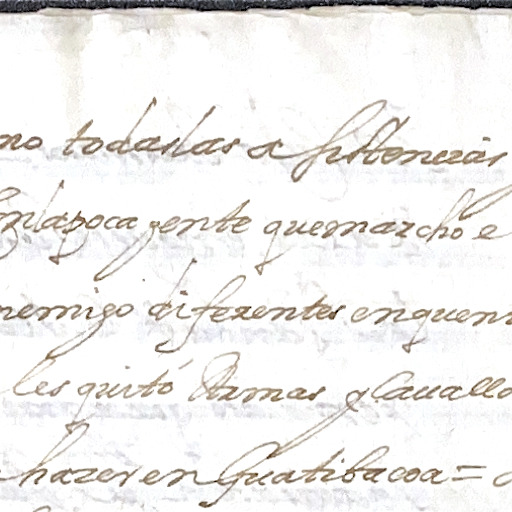 no todas las asistencias
en la poca gente que marcho e
nemigo diferentes enquen
les quitó Armas y Cauallo
hazer en Guatibacoa =